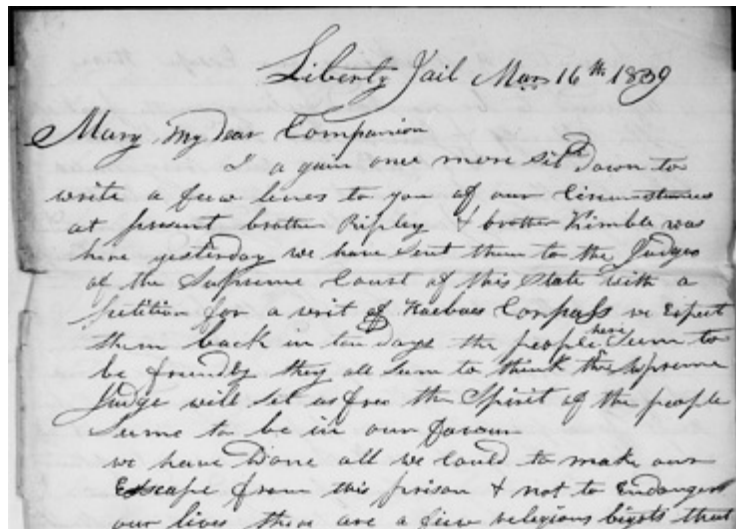 Liberty Jail Mar 16th 1839
Mary My Dear Companion
I a gain once more sit Down to
write a few lines to you of our Circumstances
at present brother Ripley & brother Kimble was
here yesterday we have sent them to the Judges
of the Supreme Court of this State with a
petition for a writ of Haebaes Corpass we Expect
them back in ten Days the people here seem to
be friendly they all seem to think the Supreme
Judge will set us free the Spirit of the people
Seems to be in our favour
we have Done all we Could to make our
Escape from this prison & not to Endanger
our lives there are a few religious bigots that